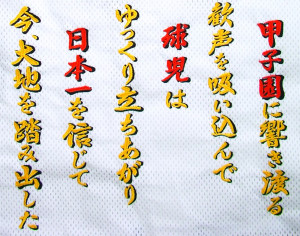 甲子園に響き渡る
歓声を吸い込んで
球児は
ゆっくり立ちあがり
日本一を信じて
今、大地を踏み出した